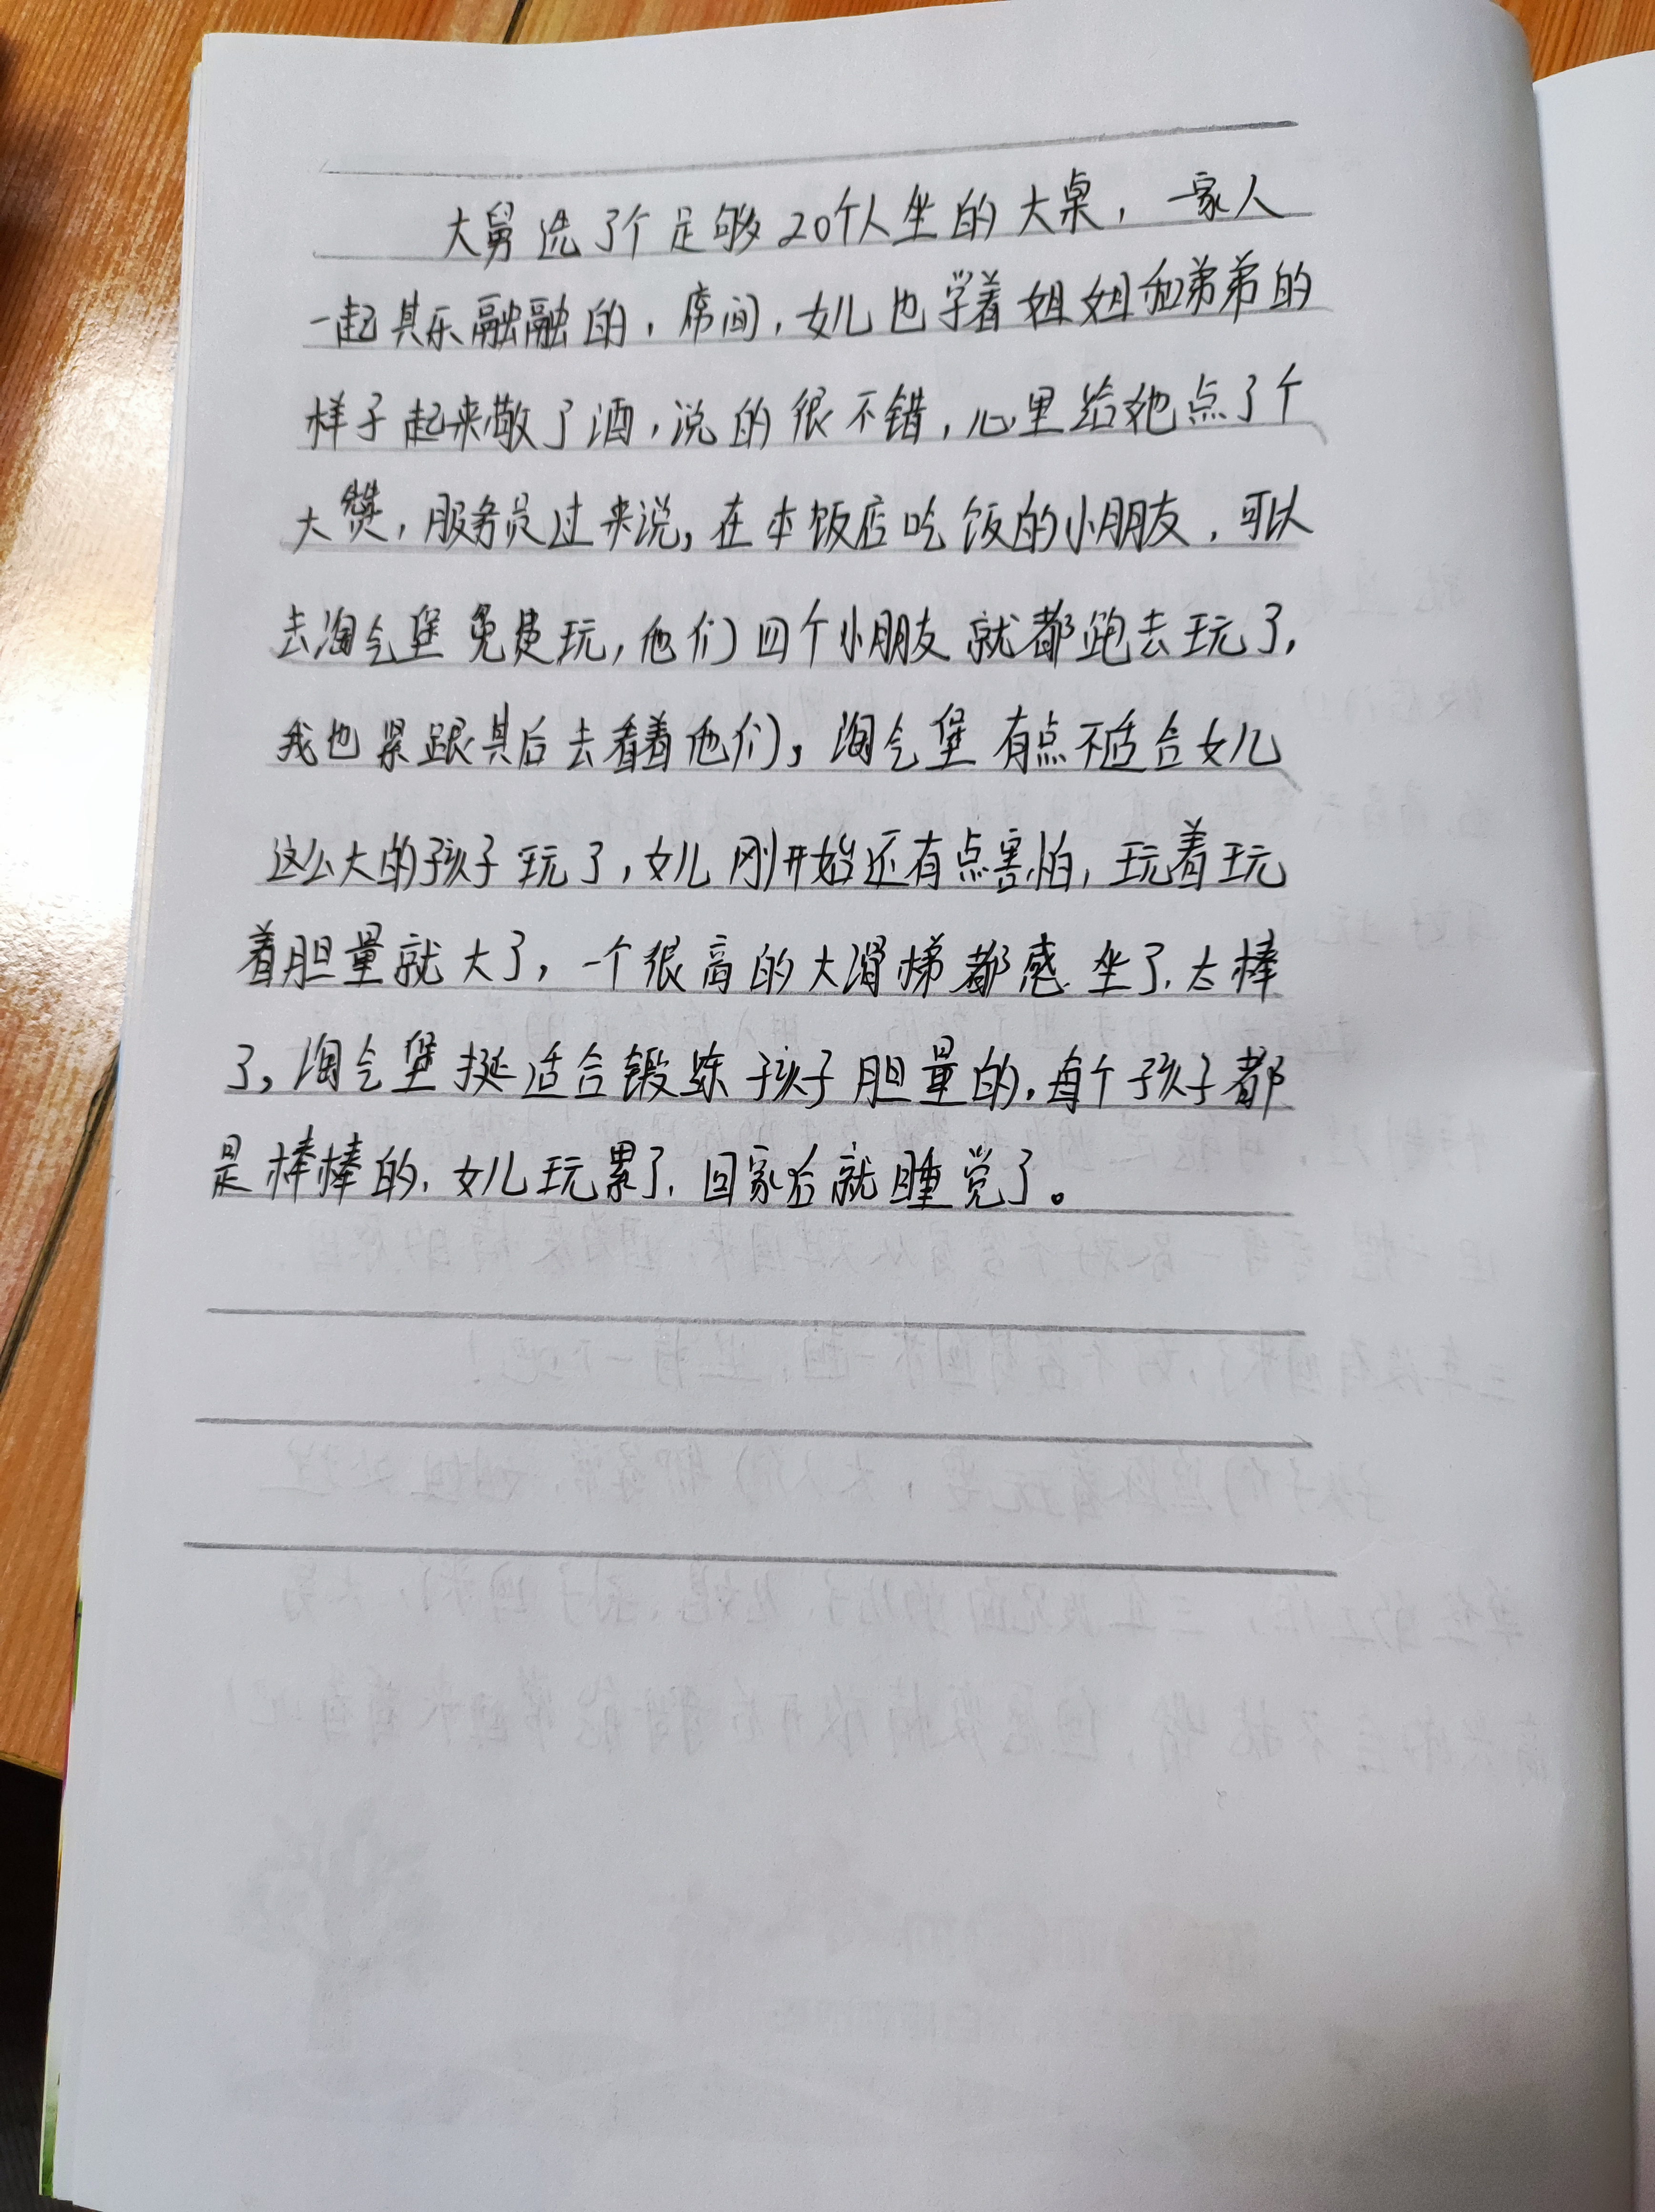 大舅选了个足够20个人坐的大桌，一家人
一起其乐融融的，席间，女儿也学着姐姐和弟弟的
样子起来敬了酒，说的很不错，心里给她点了个
大赞，服务员过来说，在本饭店吃饭的小朋友，可以
去淘气堡免费玩，他们四个小朋友就都跑去玩了，
我也紧跟其后去看着他们，淘气堡有点不适合女儿
这么大的孩子玩了，女儿刚开始还有点害怕，玩着玩
着胆量就大了，一个很高的大滑梯都感坐了，太棒
了，淘气堡挺适合锻炼孩子胆量的，每个孩子都
是棒棒的，女儿玩累了，回家后就睡觉了。